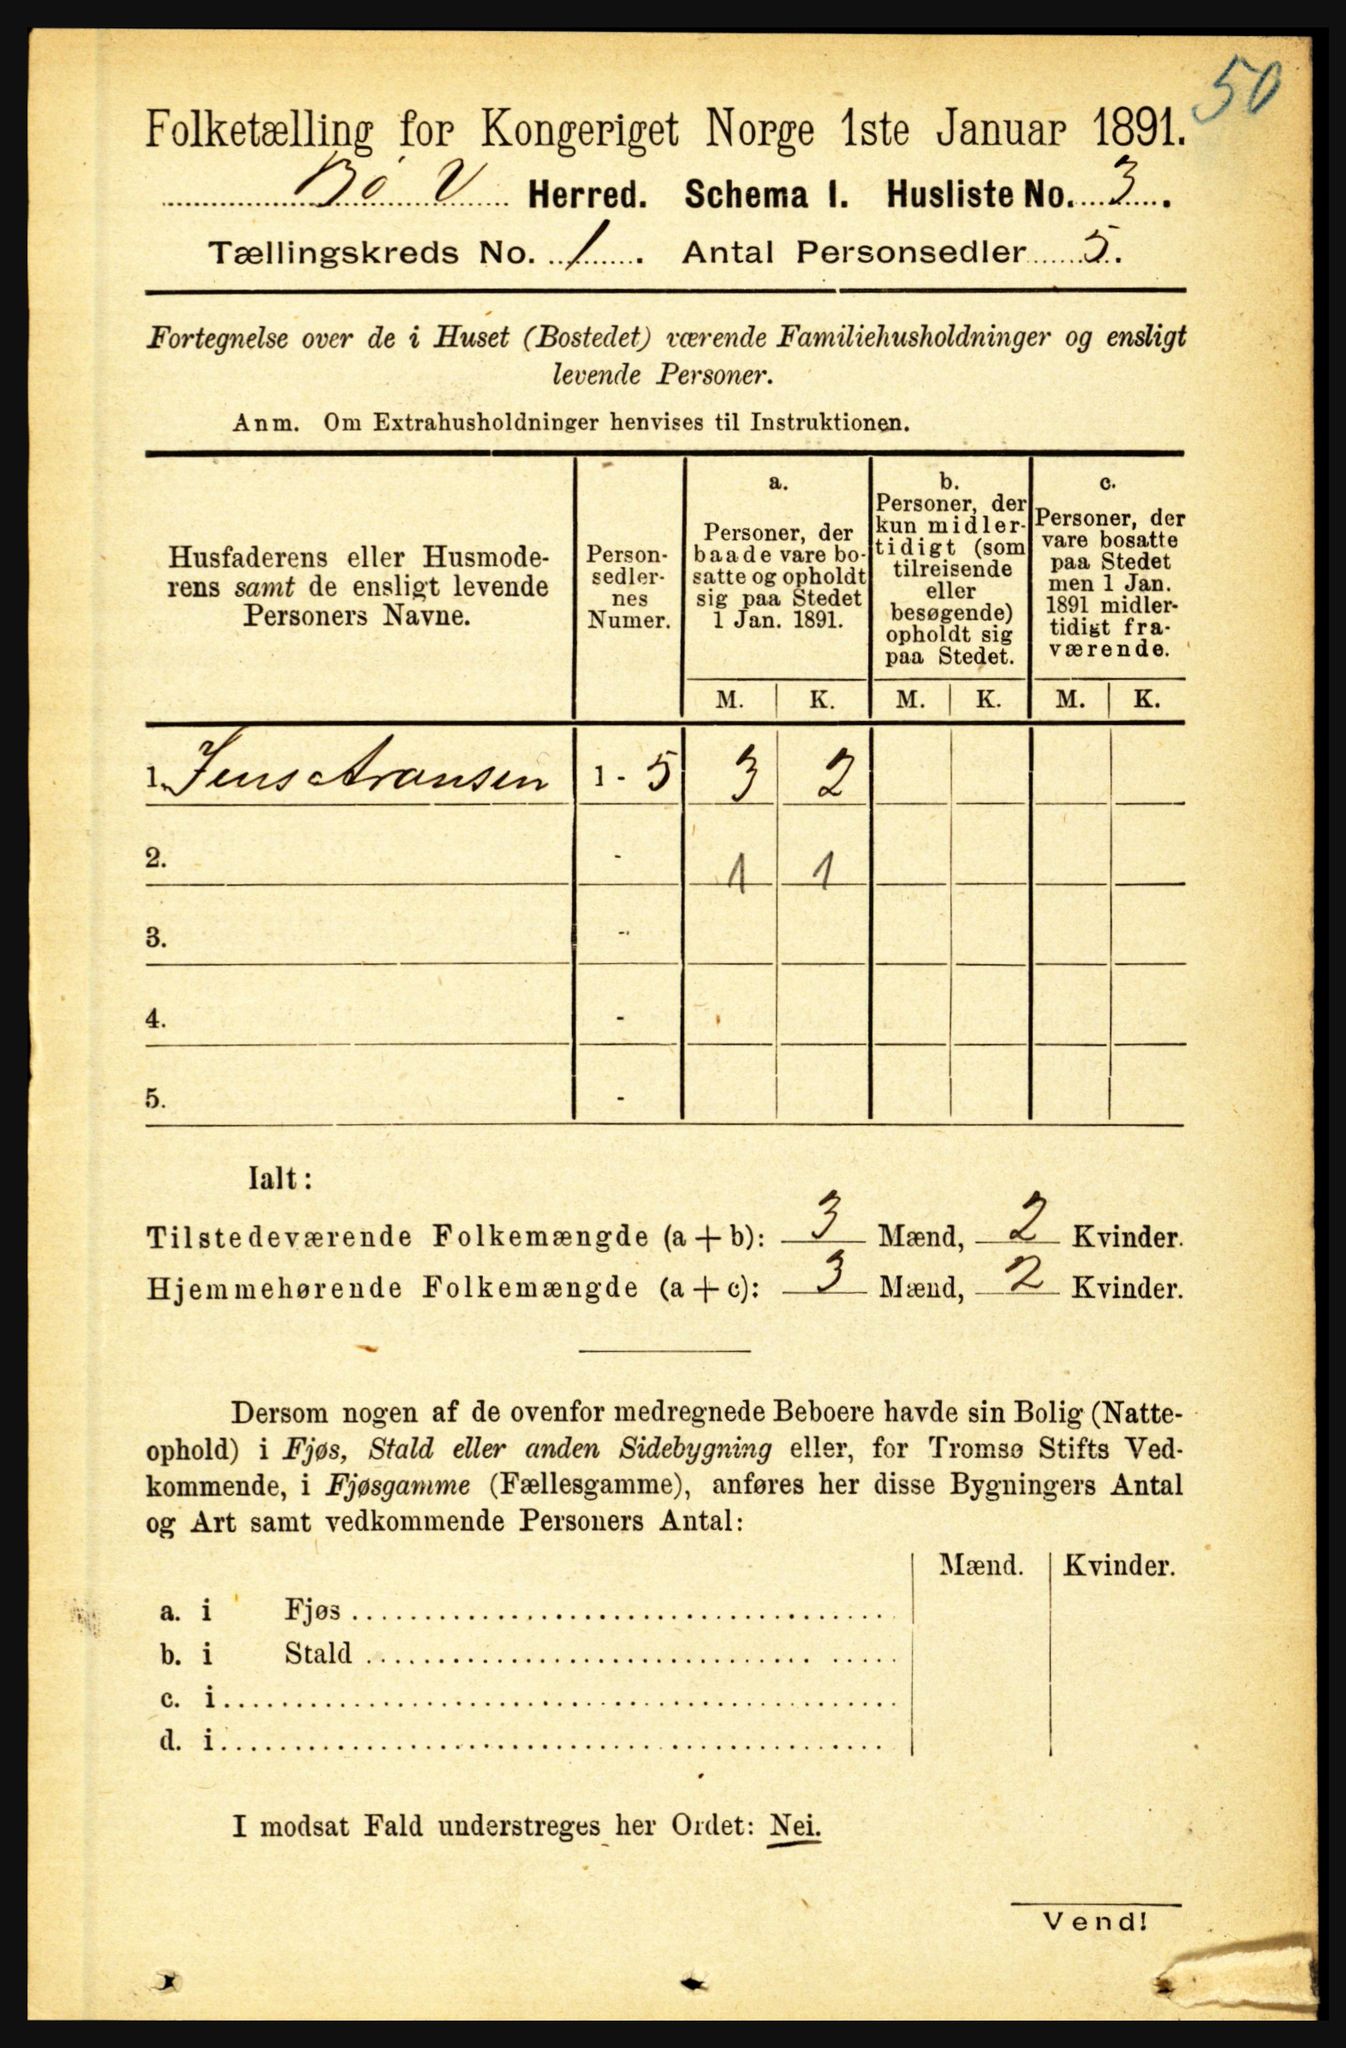 50
Folketælling for Kongeriget Norge 1ste Januar 1891.
Bø V Herred. Schema I. Husliste No. 3.
Tællingskreds No. 1. Antal Personsedler 5.
Fortegnelse over de i Huset (Bostedet) værende Familiehusholdninger og ensligt
levende Personer.
Anm. Om Extrahusholdninger henvises til Instruktionen.
Husfaderens eller Husmode-
rens samt de ensligt levende
Personers Navne.
Person-
sedler-
nes
Numer.
a.
Personer, der
baade vare bo-
satte og opholdt
sig paa Stedet
1 Jan. 1891.
b.
Personer, der
kun midler-
tidigt (som
tilreisende
eller
besøgende)
opholdt sig
paa Stedet.
c.
Personer, der
vare bosatte
paa Stedet
men 1 Jan.
1891 midler-
tidigt fra-
værende.
M. K. M. K. M. K.
1. Jens Aransen 1 - 5 3 2
2. - 1 1
3. -
4. -
5. -
Ialt:
Tilstedeværende Folkemængde (a + b): 3 Mænd, 2 Kvinder.
Hjemmehørende Folkemængde (a + c): 3 Mænd, 2 Kvinder.
Dersom nogen af de ovenfor medregnede Beboere havde sin Bolig (Natte-
ophold) i Fjøs, Stald eller anden Sidebygning eller, for Tromsø Stifts Ved-
kommende, i Fjøsgamme (Fællesgamme), anføres her disse Bygningers Antal
og Art samt vedkommende Personers Antal:
Mænd. Kvinder.
a. i Fjøs
b. i Stald
c. i
d. i
I modsat Fald understreges her Ordet: Nei.
Vend!